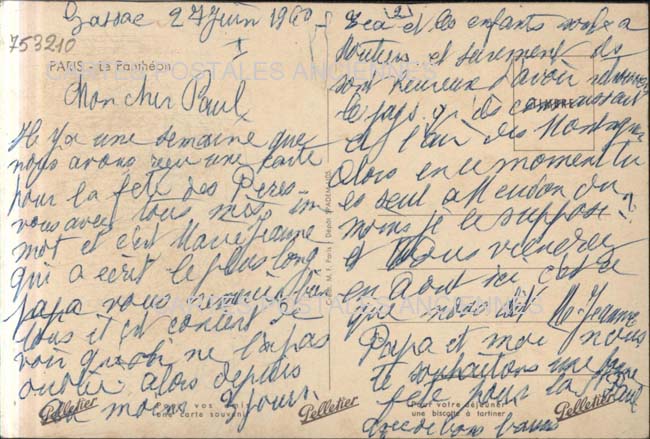 Gassac 27 Juin 1960
I
753210
PARIS - Le Panthéon
Mon cher Paul
Il y a une semaine que
nous avons reçu une carte
pour la fête des Pères
vous avez tous mis un
mot et c'est Marie Jeanne
qui a écrit le plus long
papa vous remercie bien
tous et est content de
voir qu'on ne l'a pas
oublié alors depuis
au moins 8 jours.
Pour vos amis
une carte souvenir
Pelletier
Pelletier
Edit. M. F. Paris - Dépôt
2
Léa et les enfants sont a
Moutiers et surement ils
sont heureux d'avoir
le pays qu'ils connaissait
et l'air des Montagnes
TIMBRE
Alors en ce moment tu
es seul a Meudon du
moins je le suppose ?
et vous viendrez
en Aout ici c'est ce
que nous dit M-Jeanne
Papa et moi nous
te souhaitons une bonne
fête pour la St Paul
avec de bons baisers
Pour votre déjeuner
une biscotte à tartiner
Pelletier
CARTES POSTALES ANCIENNES
CARTES POSTALES ANCIENNES